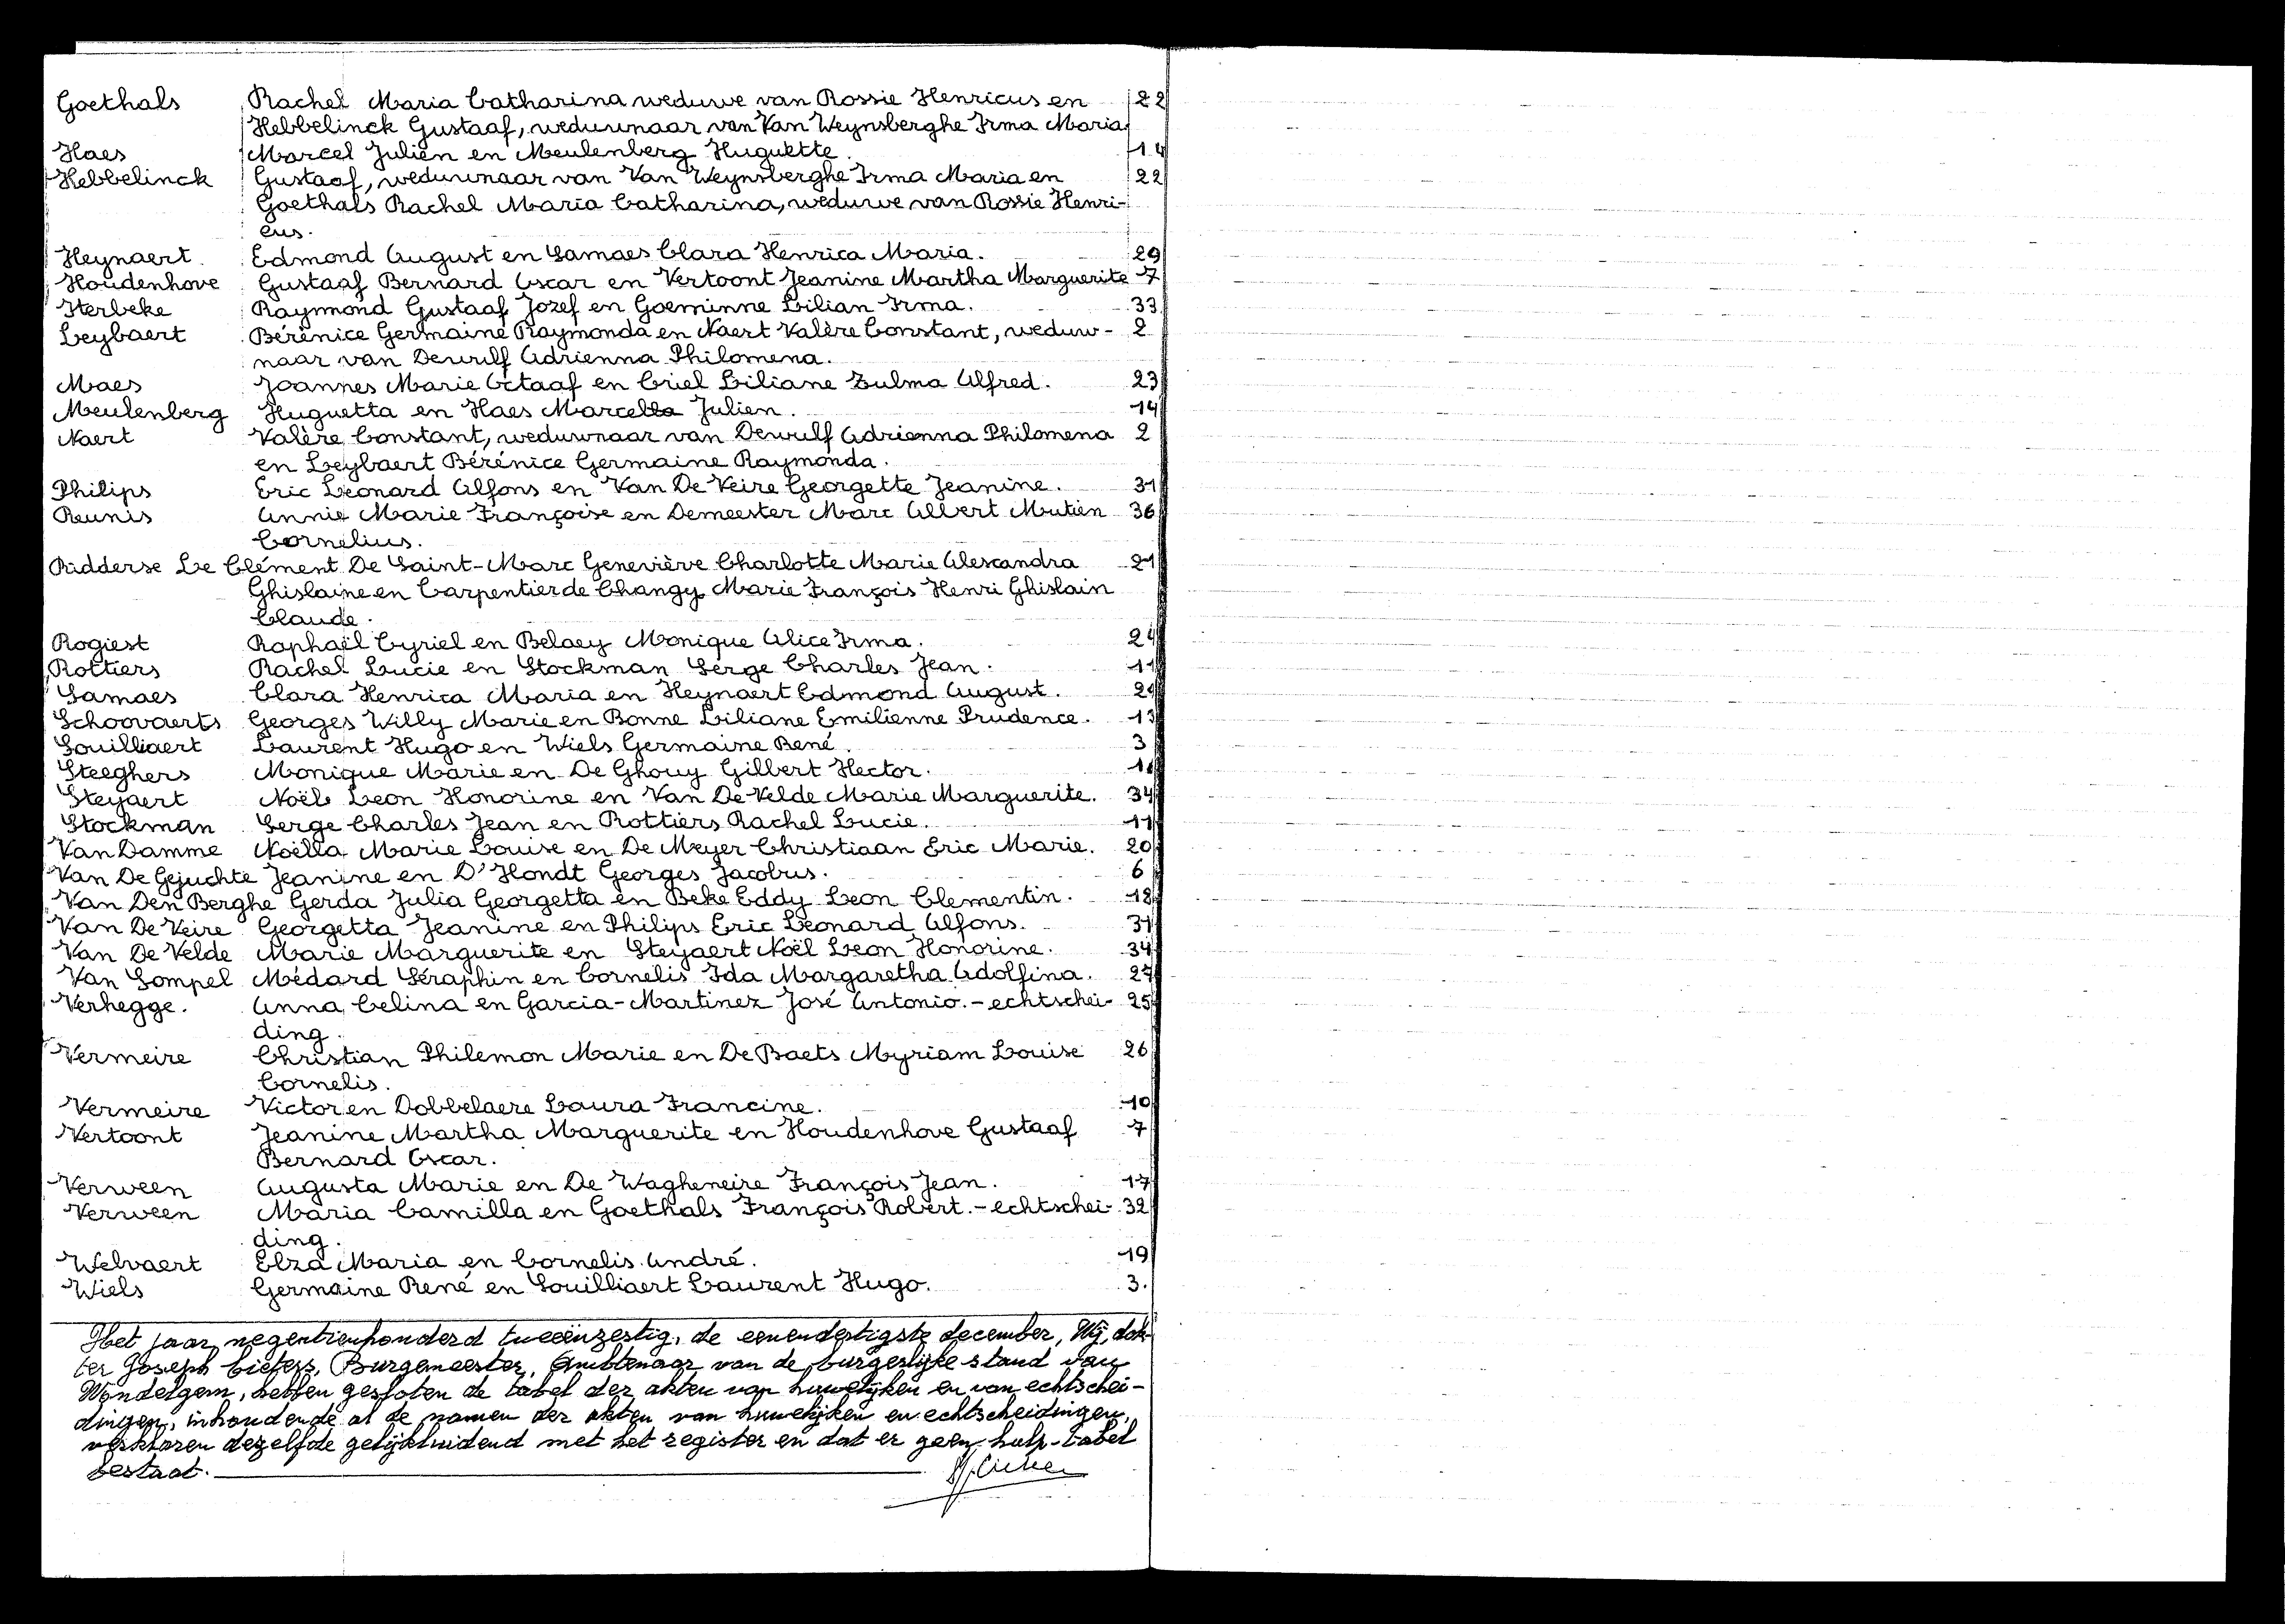 Goethals Rachel Maria Catharina weduwe van Rossie Henricus en 22
Hebbelinck Gustaaf, weduwnaar van Van Weynsberghe Irma Maria
Haes Marcel Julien en Meulenberg Huguette. 14
Hebbelinck Gustaaf, weduwnaar van Van Weynsberghe Irma Maria en 22
Goethals Rachel Maria Catharina, weduwe van Rossie Henri-
cus.
Heynaert. Edmond August en Samaes Clara Henrica Maria. 29
Houdenhove Gustaaf Bernard Oscar en Vertoont Jeanine Martha Marguerite 7
Iterbeke Raymond Gustaaf Jozef en Goeminne Lilian Irma. 33
Leybaert Bérénice Germaine Raymonda en Naert Valère Constant, weduw- 2
naar van Dewulf Adrienna Philomena.
Maes Joannes Marie Octaaf en Criel Liliane Zulma Alfred. 23
Meulenberg Huguetta en Haes Marcella Julien. 14
Naert Valère Constant, weduwnaar van Dewulf Adrienna Philomena 2
en Leybaert Bérénice Germaine Raymonda.
Philips Eric Leonard Alfons en Van De Veire Georgette Jeanine. 31
Reunis Annie Marie Françoise en Demeester Marc Albert Mutien 36
Cornelius.
Ridderse Le Clément De Saint-Marc Geneviève Charlotte Marie Alexandra 21
Ghislaine en Carpentier de Changy Marie François Henri Ghislain
Claude.
Rogiest Raphaël Cyriel en Belaey Monique Alice Irma. 24
Rottiers Rachel Lucie en Stockman Serge Charles Jean. 11
Samaes Clara Henrica Maria en Heynaert Edmond August. 29
Schoovaerts Georges Willy Marie en Bonne Liliane Emilienne Prudence. 13
Souilliaert Laurent Hugo en Wiels Germaine René. 3
Steeghers Monique Marie en De Ghouy Gilbert Hector.
Steyaert Noël Leon Honorine en Van De Velde Marie Marguerite. 34
Stockman Serge Charles Jean en Rottiers Rachel Lucie. 11
Van Damme Noëlla Marie Louise en De Meyer Christiaan Eric Marie. 20
Van De Gejuchte Jeanine en D'Hondt Georges Jacobus. 6
Van Den Berghe Gerda Julia Georgetta en Beke Eddy Leon Clementin. 18
Van De Veire Georgetta Jeanine en Philips Eric Leonard Alfons. 31
Van De Velde Marie Marguerite en Steyaert Noël Leon Honorine. 34
Van Sompel Médard Séraphin en Cornelis Ida Margaretha Adolfina. 27
Verhegge. Anna Celina en Garcia-Martinez José Antonio. - echtschei- 25
ding.
Vermeire Christian Philemon Marie en De Baets Myriam Louise 26
Cornelis.
Vermeire Victor en Dobbelaere Laura Francine. 10
Vertoont Jeanine Martha Marguerite en Houdenhove Gustaaf 7
Bernard Oscar.
Verween Augusta Marie en De Wagheneire François Jean. 17
Verween Maria Camilla en Goethals François Robert. - echtschei- 32
ding.
Welvaert Elza Maria en Cornelis André. 19
Wiels Germaine René en Souilliaert Laurent Hugo. 3.
Het jaar negentienhonderd tweeënzestig, de eenendertigste december, Wij, dok-
ter Joseph Cieters, Burgemeester, Ambtenaar van de burgerlijke stand van
Wondelgem, hebben gesloten de tabel der akten van huwelijken en van echtschei-
dingen, inhoudende al de namen der akten van huwelijken en echtscheidingen,
verklaren dezelfde gelijkluidend met het register en dat er geen hulp-tabel
bestaat.